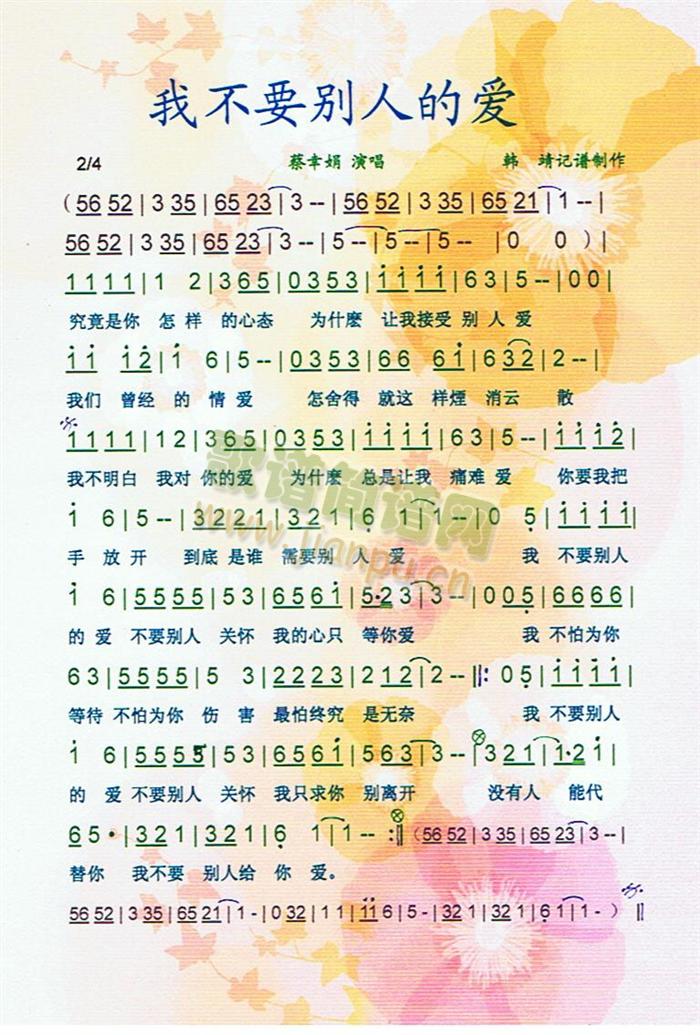 我不要别人的爱
2/4 蔡幸娟 演唱 韩 靖记谱制作
（56 52 | 3 35 | 65 23 | 3 -- | 56 52 | 3 35 | 65 21 | 1 -- |
56 52 | 3 35 | 65 23 | 3 -- | 5 -- | 5 -- | 5 -- | 0 0 ）|
1111 | 1 2 | 365 | 0353 | i i i i | 635 | 5 -- | 00 |
究竟是你 怎 样 的心态 为什麽 让我接受 别 人 爱
i i i 2̇ | i 6 | 5 -- | 0353 | 66 6i | 632 | 2 -- |
我们 曾经 的 情 爱 怎舍得 就这 样煙 消云 散
1111 | 12 | 365 | 0353 | i i i i | 635 | 5 -- | i i i 2̇ |
我不明白 我对 你的爱 为什麽 总是让我 痛难 爱 你要我把
i 6 | 5 -- | 3221 | 321 | 6̣ 1 | 1 -- | 0 5̣ | i i i i |
手 放 开 到底 是谁 需要别 人 爱 我 不要别人
i 6 | 5555 | 53 | 656i | 5·23 | 3 -- | 0 5 | 6666 |
的 爱 不要别人 关怀 我的心只 等你爱 我 不怕为你
63 | 5555 | 5 3 | 2223 | 212 | 2 -- |: 05 | i i i i |
等待 不怕为你 伤 害 最怕终究 是无奈 我 不要别人
i 6 | 5555 | 53 | 656i | 563 | 3 -- | 321 | 1·2 i |
的 爱 不要别人 关怀 我只求你 别离开 没有人 能代
65· | 321 | 321 | 6̣ 1 | 1 -- :|| （56 52 | 3 35 | 65 23 | 3 -- |
替你 我不要 别人给 你 爱。
56 52 | 3 35 | 65 21 | 1 - | 0 32 | 11 | i i 6 | 5 - | 32 1 | 32 1 | 6̣ 1 | 1 - ）||
歌谱简谱网
www.jianpu.cn